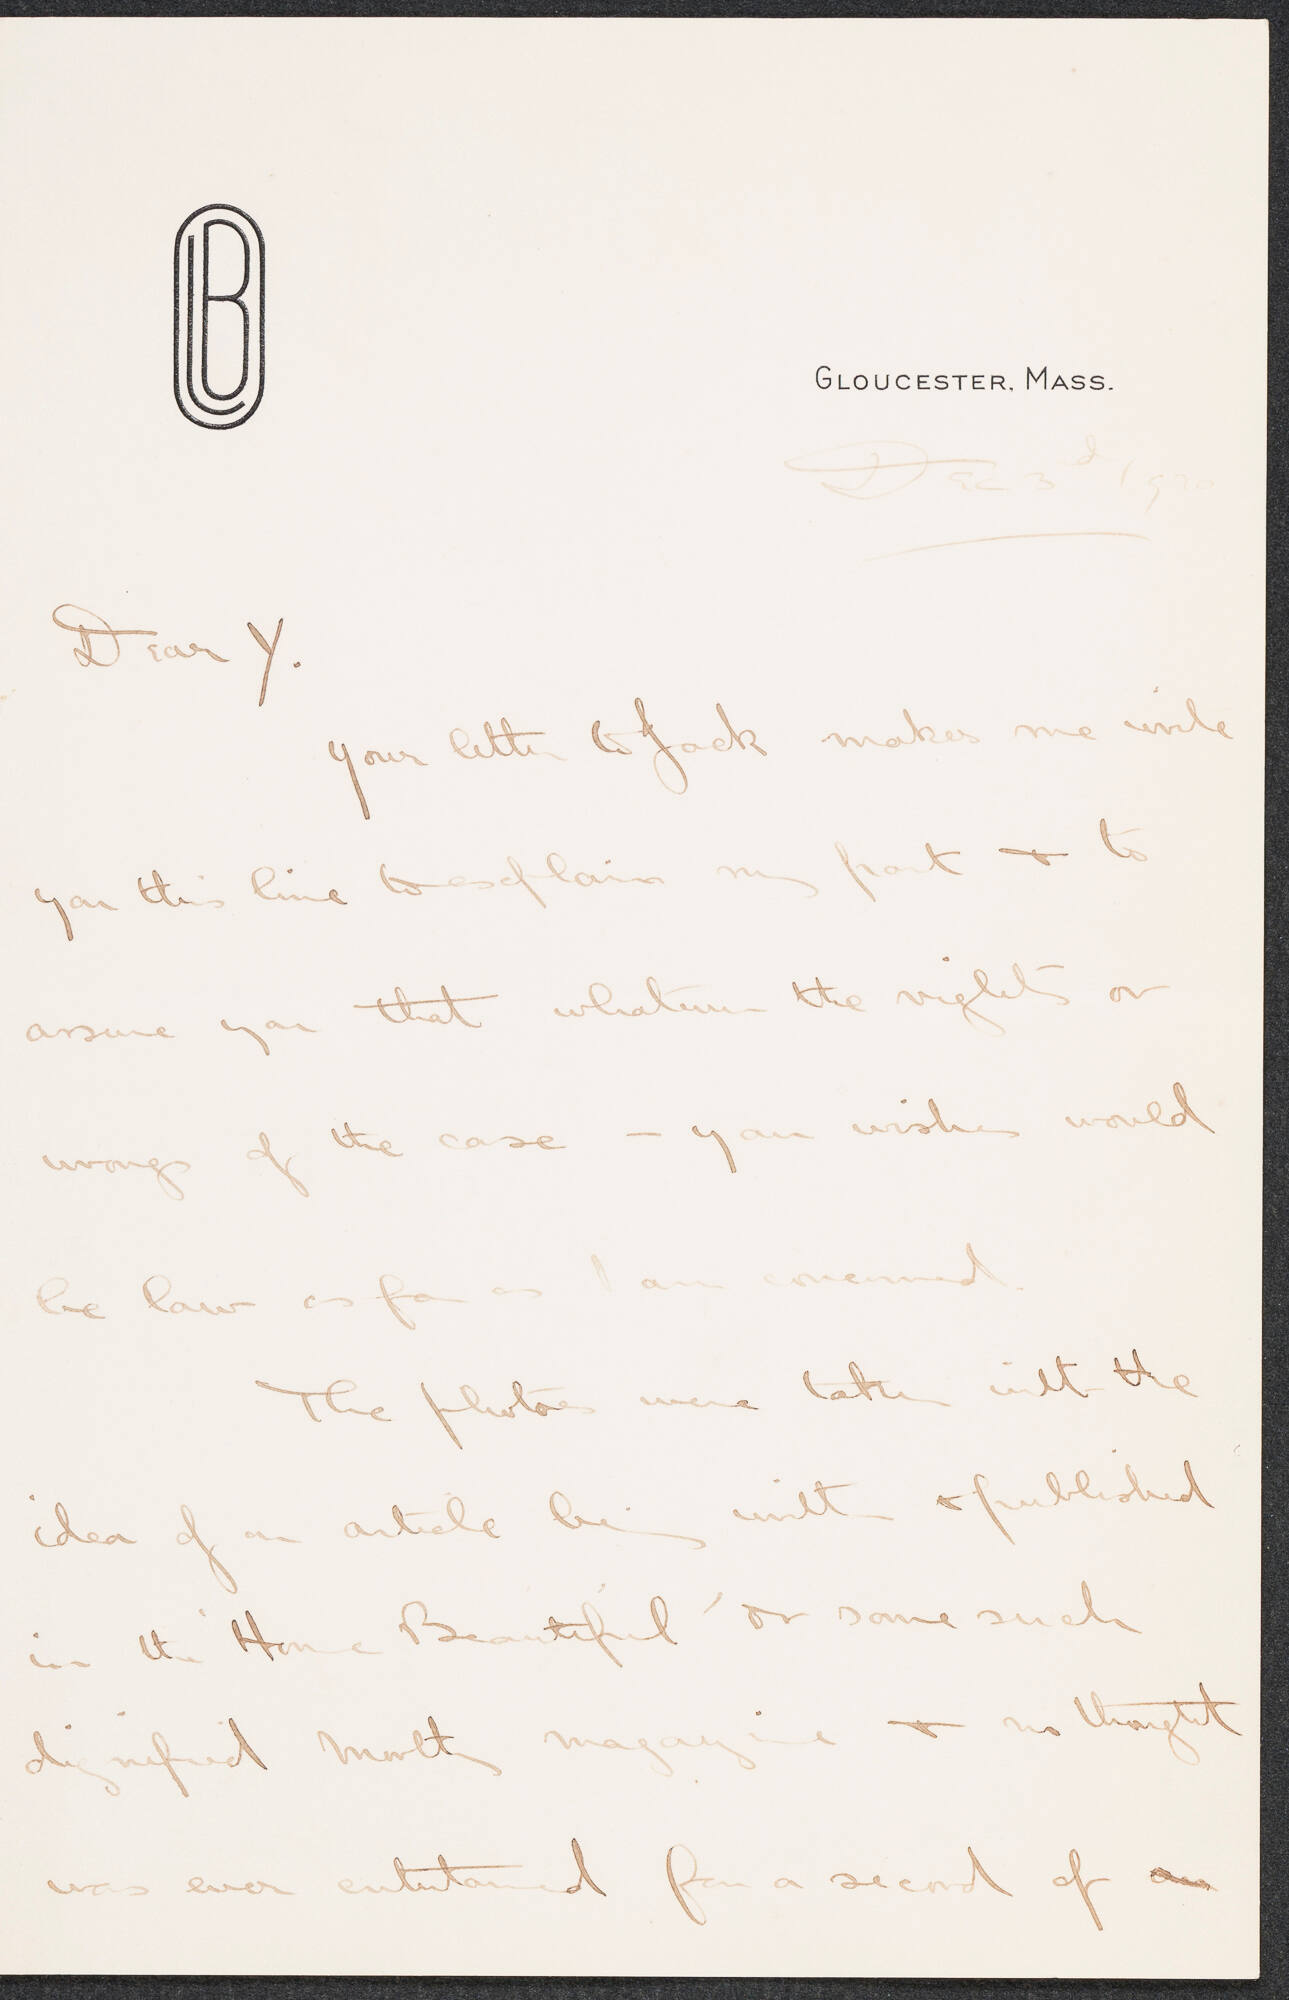 CLB
GLOUCESTER, MASS.
Dec 3d 1920
Dear Y.
your letter to Jack makes me write
you this line to explain my part & to
assure you that whatever the rights or
wrongs of the case - your wishes would
be law as far as I am concerned.
The photos were taken with the
idea of an article being written & published
in the "Home Beautiful" or some such
dignified monthly magazine & no thought
was ever entertained for a second of an